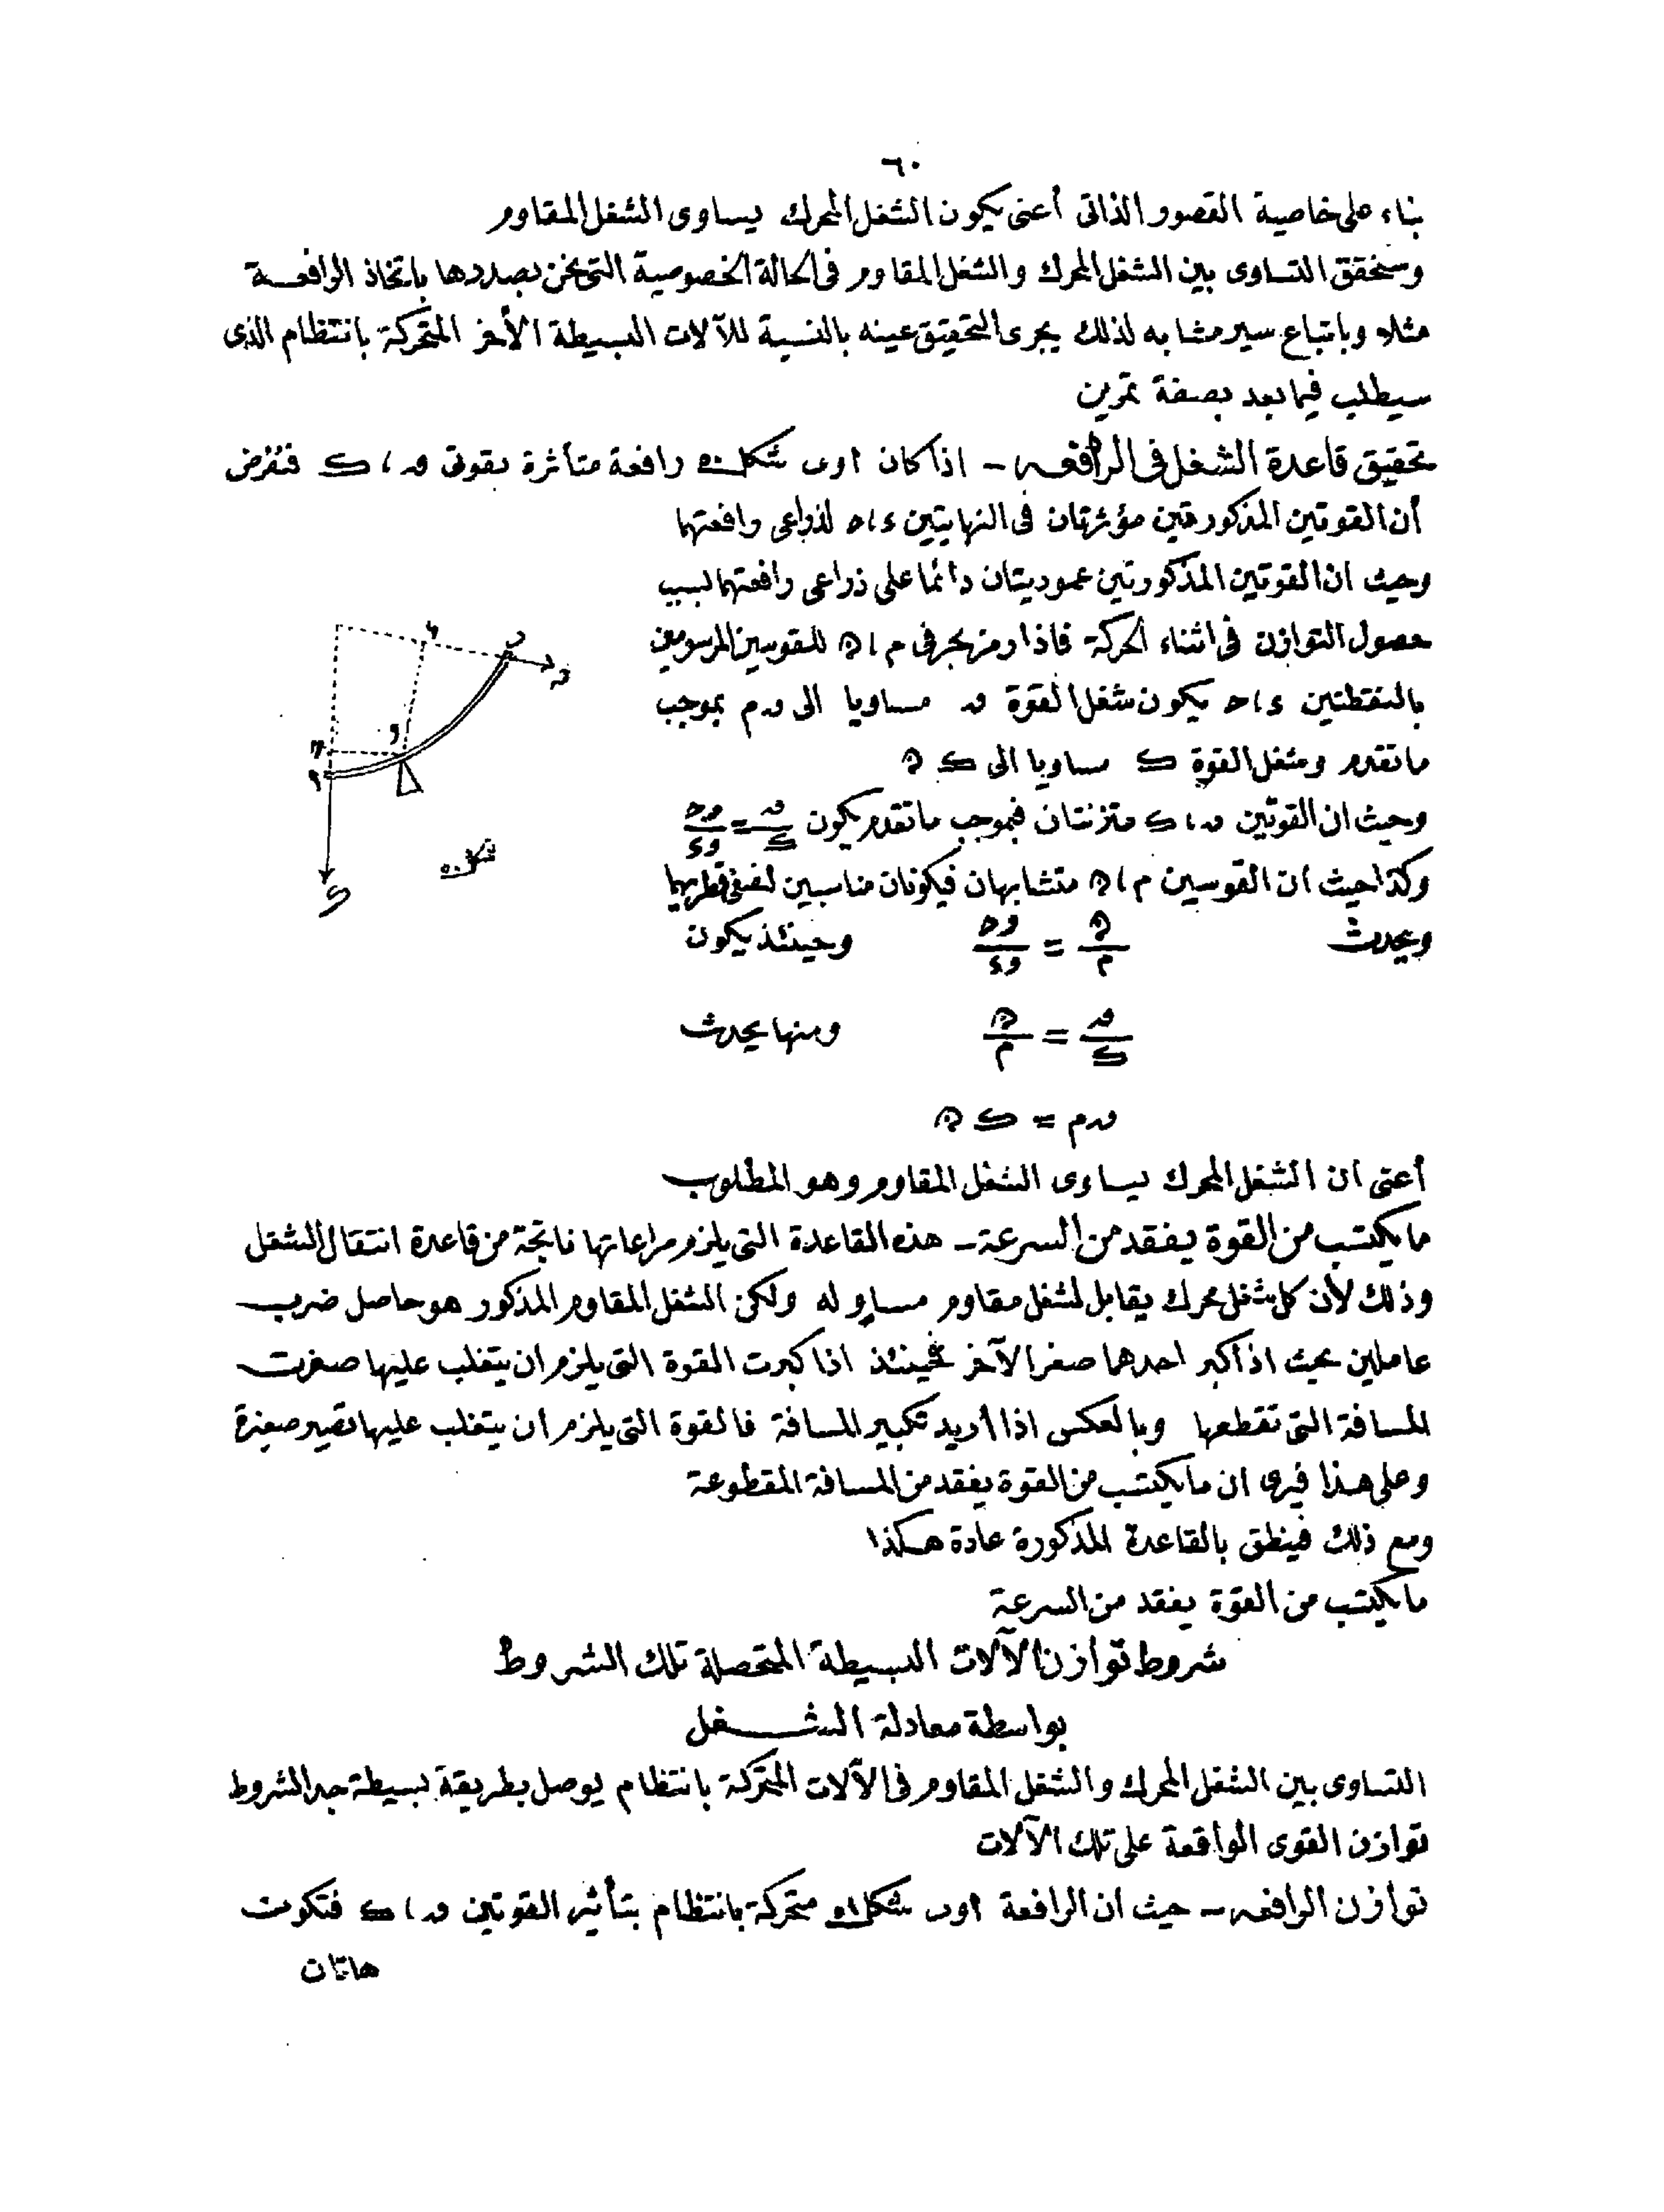 ٦٠
بناء على خاصية القصور الذاتى أعنى يكون الشغل المحرك يساوى الشغل المقاوم
وسنحقق التساوى بين الشغل المحرك والشغل المقاوم فى الحالة الخصوصية التى نحن بصددها باتخاذ الرافعة
مثلا وباتباع سير مشابه لذلك يجرى التحقيق عينه بالنسبة للآلات البسيطة الأخر المتحركة بانتظام الذى
سيطلب فيما بعد بصفة تمرين
تحقيق قاعدة الشغل فى الرافعه ـ اذا كان اوب شكل ٥٠ رافعة متأثرة بقوتى ق ، ك فنفرض
أن القوتين المذكورتين مؤثرتان فى النهايتين ء ، ح لذراعى رافعتهما
وحيث ان القوتين المذكورتين عموديتان دائما على ذراعى رافعتهما لسبب
حصول التوازن فى اثناء الحركة فاذا رمز بحرفى م ، ﮪ للقوسين المرسومين
بالنقطتين ء ، ح يكون شغل القوة ق مساويا الى ق م بموجب
ما تقدم وشغل القوة ك مساويا الى ك ﮪ
وحيث ان القوتين ق ، ك متزنتان فبموجب ما تقدم يكون ق/ك = وح/وء
وكذا حيث ان القوسين م ، ﮪ متشابهان فيكونان مناسبين لنصفى قطريهما
ويحدث ﮪ/م = وح/وء وحينئذ يكون
ق/ك = ﮪ/م ومنها يحدث
ق م = ك ﮪ
شكل ٥٠
أعنى ان الشغل المحرك يساوى الشغل المقاوم وهو المطلوب
ما يكتسب من القوة يفقد من السرعة ـ هذه القاعدة التى يلزم مراعاتها ناتجة من قاعدة انتقال الشغل
وذلك لأن كل شغل محرك يقابل لشغل مقاوم مساو له ولكن الشغل المقاوم المذكور هو حاصل ضرب
عاملين بحيث اذا كبر احدهما صغر الآخر فحينئذ اذا كبرت القوة التى يلزم ان يتغلب عليها صغرت
المسافة التى تقطعها وبالعكس اذا أريد تكبير المسافة فالقوة التى يلزم ان يتغلب عليها تصير صغيرة
وعلى هذا فيرى ان ما يكتسب من القوة يفقد من المسافة المقطوعة
ومع ذلك فينطق بالقاعدة المذكورة عادة هكذا
ما يكتسب من القوة يفقد من السرعة
شروط توازن الآلات البسيطة المتحصلة تلك الشروط
بواسطة معادلة الشغل
التساوى بين الشغل المحرك والشغل المقاوم فى الآلات المتحركة بانتظام يوصل بطريقة بسيطة جدا لشروط
توازن القوى الواقعة على تلك الآلات
توازن الرافعه ـ حيث ان الرافعة اوب شكل ٥١ متحركة بانتظام بتأثير القوتين ق ، ك فتكون
هاتان